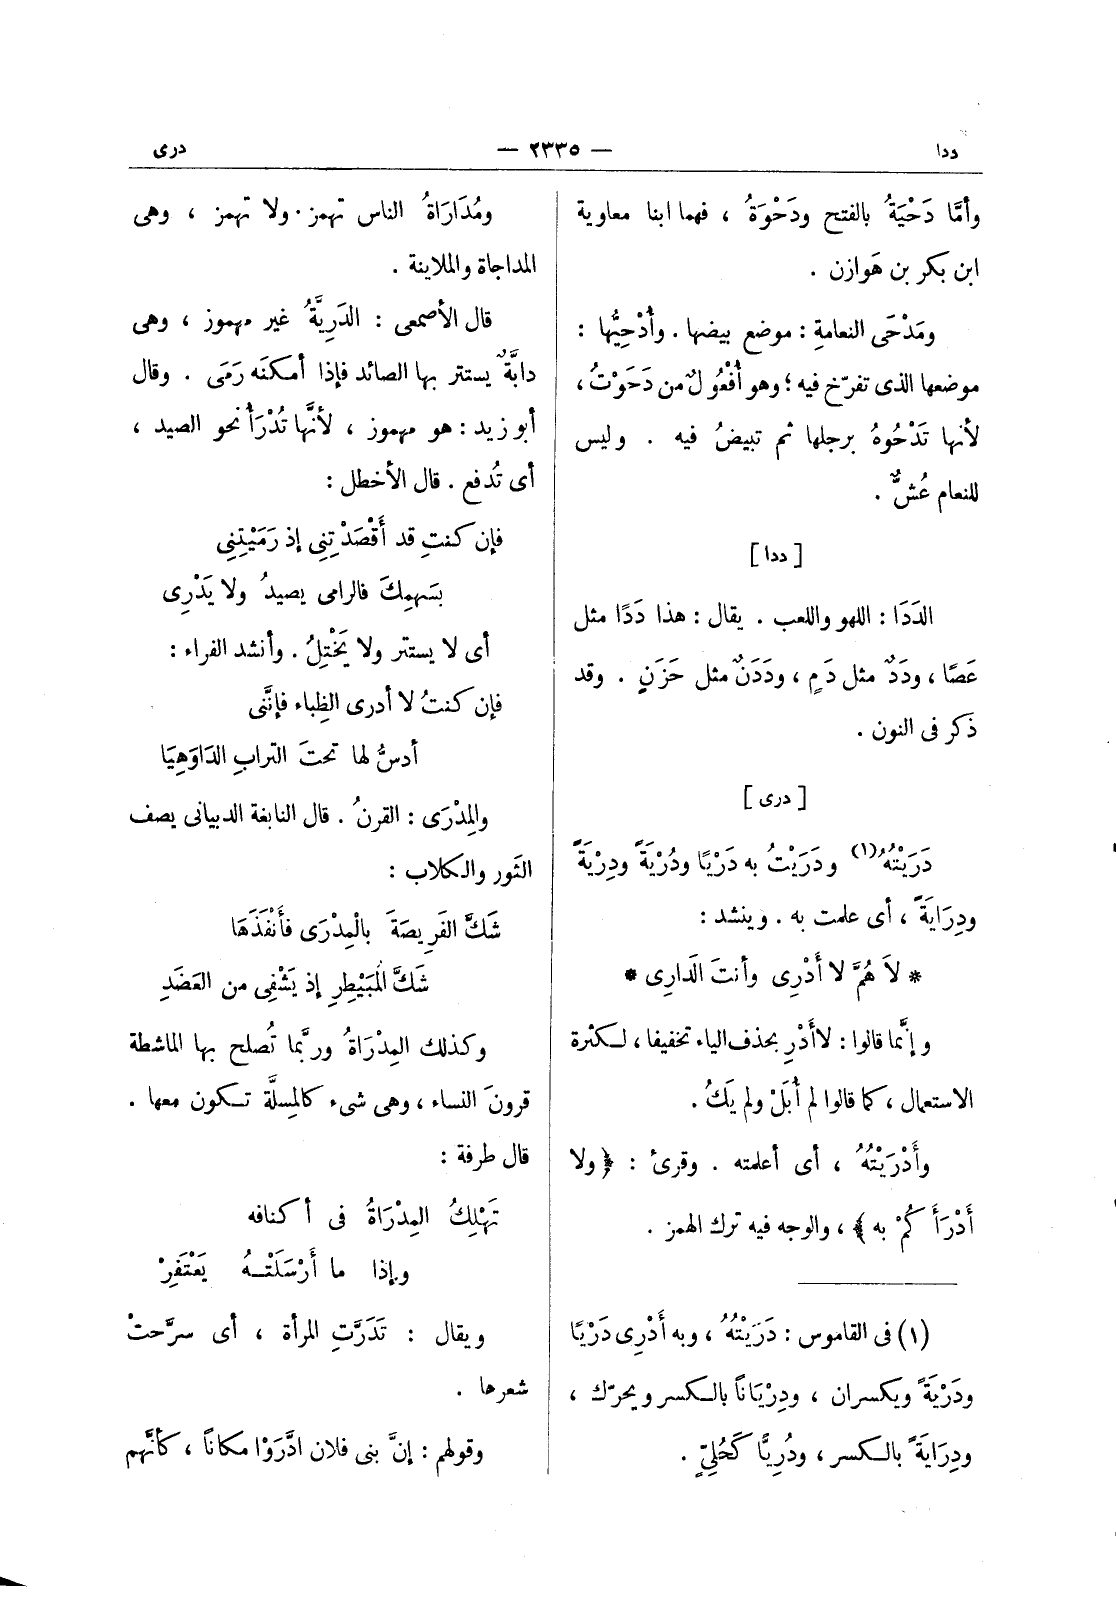 ددا
— ٢٣٣٥ —
درى
وأمَّا دَحْيَةُ بالفتح ودَحْوَةُ ، فهما ابنا معاوية
ابن بكر بن هَوازن .
ومَدْحَى النعامةِ : موضع بيضها . وأُدْحِيُّها :
موضعها الذى تفرّخ فيه ؛ وهو أُفْعُولٌ من دَحَوْتُ ،
لأنها تَدْحُوهُ برجلها ثم تبيضُ فيه . وليس
للنعام عُشٌّ .
[ ددا ]
الدَدَا : اللهو واللعب . يقال : هذا دَدًا مثل
عَصًا ، ودَدٌ مثل دَمٍ ، ودَدَنٌ مثل حَزَنٍ . وقد
ذكر فى النون .
[ درى ]
دَرَيْتُهُ (١) ودَرَيْتُ به دَرْيًا ودُرْيَةً ودِرْيَةً
ودِرَايَةً ، أى علمت به . وينشد :
* لاَهُمَّ لا أَدْرِى وأنتَ الدَارِى *
وإنَّما قالوا : لا أَدْرِ بحذف الياء تخفيفا ، لكثرة
الاستعمال ، كما قالوا لم أُبَلْ ولم يَكُ .
وأَدْرَيْتُهُ ، أى أعلمته . وقرئ : ﴿ ولا
أَدْرَأَكُمْ به ﴾ ، والوجه فيه ترك الهمز .
(١) فى القاموس : دَرَيْتُهُ ، وبه أَدْرِى دَرْيًا
ودَرْيَةً ويكسران ، ودِرْيَاناً بالكسر ويحرّك ،
ودِرَايَةً بالكسر ، ودُرِيًّا كَحُلِىٍّ .
ومُدَارَاةُ الناس تهمز . ولا تهمز ، وهى
المداجاة والملاينة .
قال الأصمعى : الدَرِيَّةُ غير مهموز ، وهى
دابَّةٌ يستتر بها الصائد فإذا أمكنَه رَمَى . وقال
أبو زيد : هو مهموز ، لأنَّها تُدْرَأُ نحو الصيد ،
أى تُدفع . قال الأخطل :
فإن كنتِ قد أَقْصَدْتِنِى إذ رَمَيْتِنِى
بسَهمِكَ فالرامى يصيدُ ولا يَدْرِى
أى لا يستتر ولا يَخْتِلُ . وأنشد الفراء :
فإن كنتُ لا أدرى الظِباء فإنَّنى
أدسُّ لها تحتَ الترابِ الدَاوَهِيَا
والمِدْرَى : القرنُ . قال النابغة الدبيانى يصف
الثَور والكلاب :
شَكَّ الفَرِيصَةَ بالْمِدْرَى فأَنْفَذَهَا
شَكَّ الْمُبَيْطِرِ إذ يَشْفِى من العَضَدِ
وكذلك المِدْرَاةُ وربَّما تُصلح بها الماشطة
قرونَ النساء ، وهى شىء كالمِسلَّة تكون معها .
قال طرفة :
تَهْلِكُ المِدْرَاةُ فى أكنافه
وإذا ما أَرْسَلَتْهُ يَعْتَفِرْ
ويقال : تَدَرَّتِ المرأة ، أى سرَّحتْ
شعرها .
وقولهم : إنَّ بنى فلان ادَّرَوْا مكاناً ، كأنَّهم